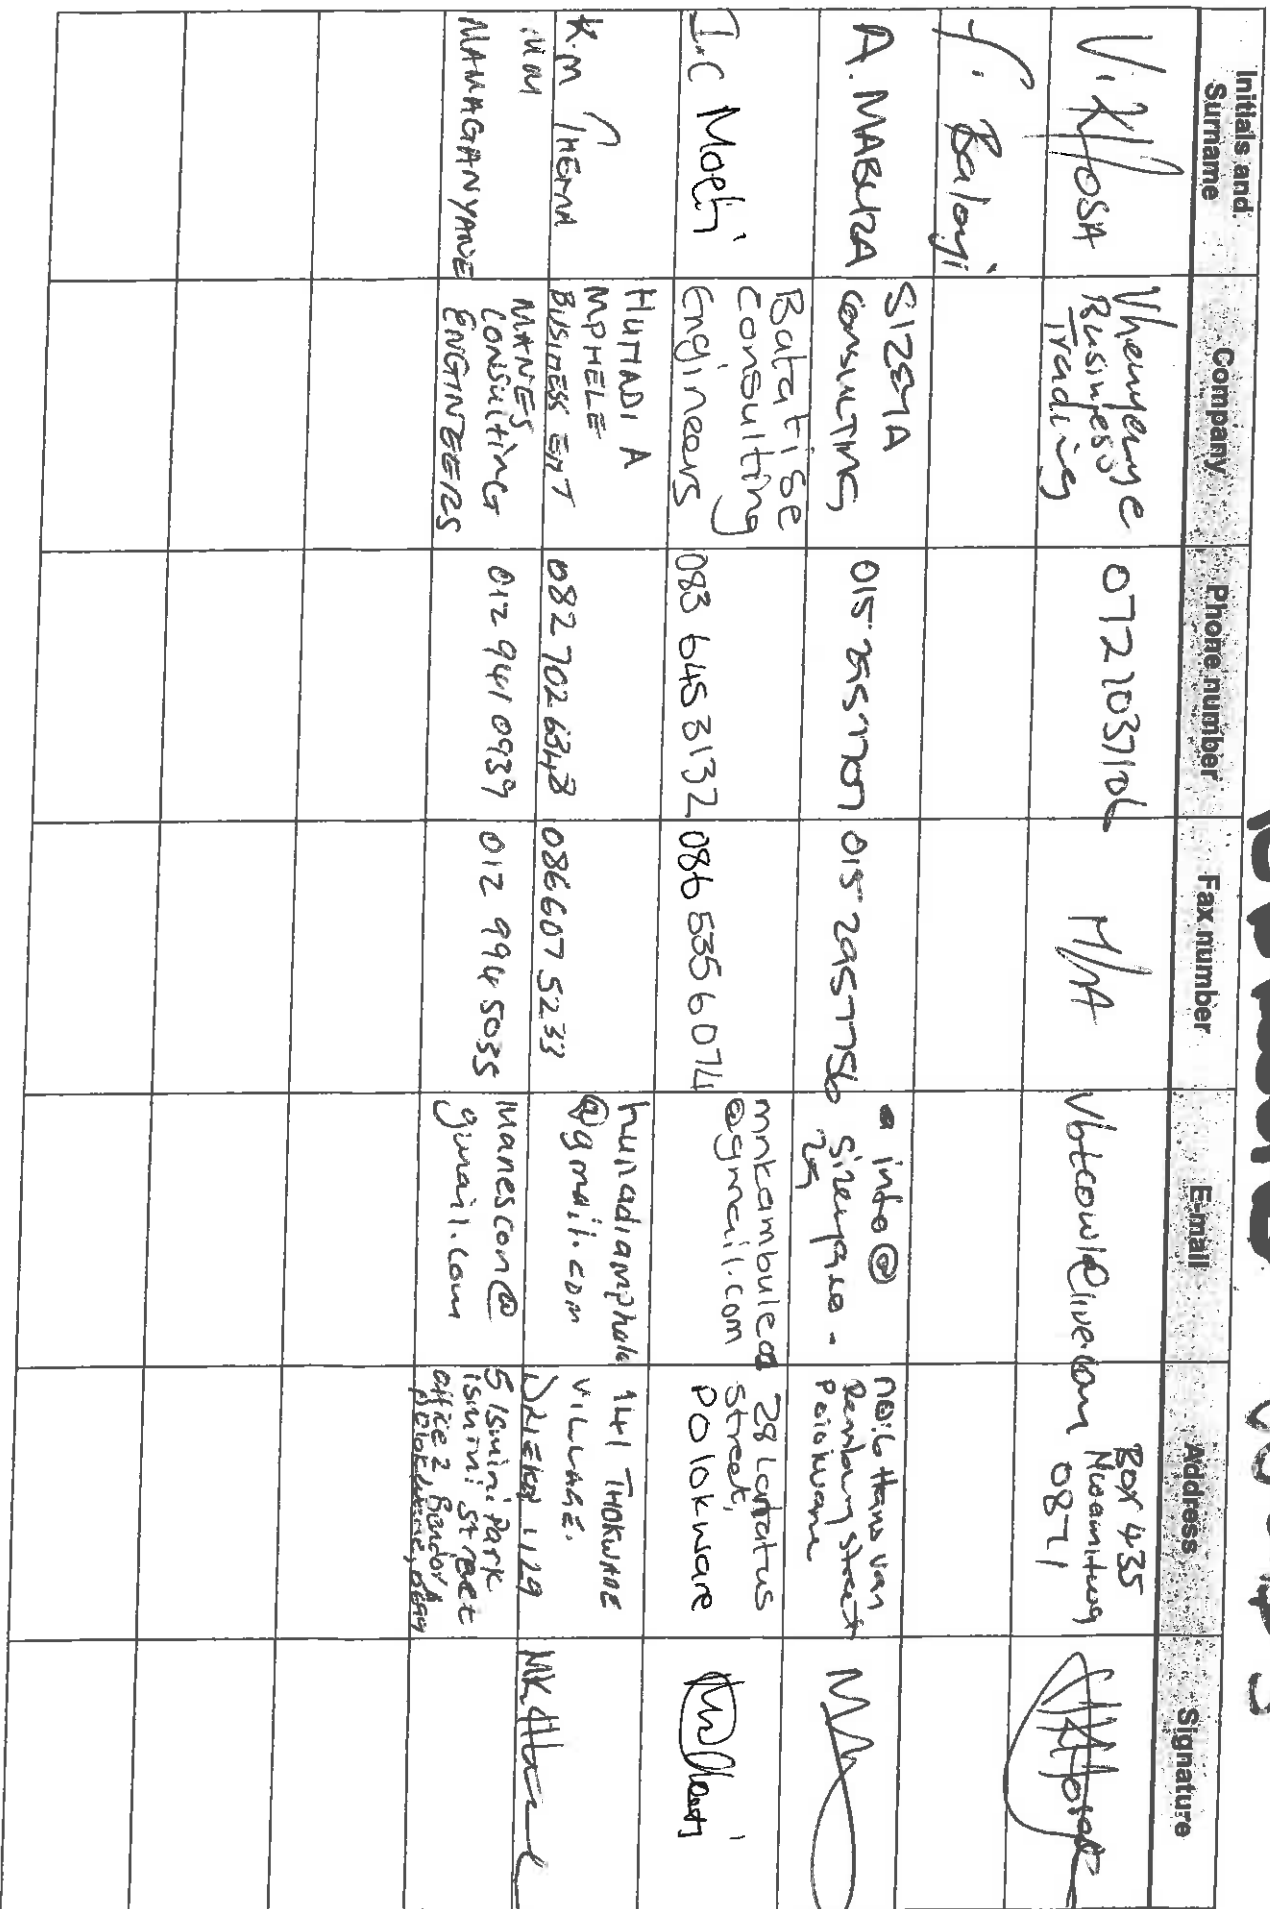 Initials and Surname Company Phone number Fax number E-mail Address Signature
V. KHOSA
Business
Trading
0722037106
N/A
Box 435
0871
J. Balogi
A. MABUZA
SIZEYA
CONSULTING
015 2957707
015 2957756
info@
no: 6 Hans van
Rensburg street
Polokwane
I.C Moeti
Batatise
Consulting
Engineers
083 645 3132
086 535 6074
mnkambulea
@gmail.com
28 Lantatus
street,
Polokware
K.M THEMA
HUNADI A
MPHELE
BUSINESS ENT
082 702 6348
086607 5233
hunadiamphele
@gmail.com
141 THOKWANE
VILLAGE.
1129
MM
MAMAGANYANE
MANES
CONSULTING
ENGINEERS
012 941 0939
012 994 5035
manescon@
gmail.com
5 Ismini Park
ismini street
office 2 Bendor